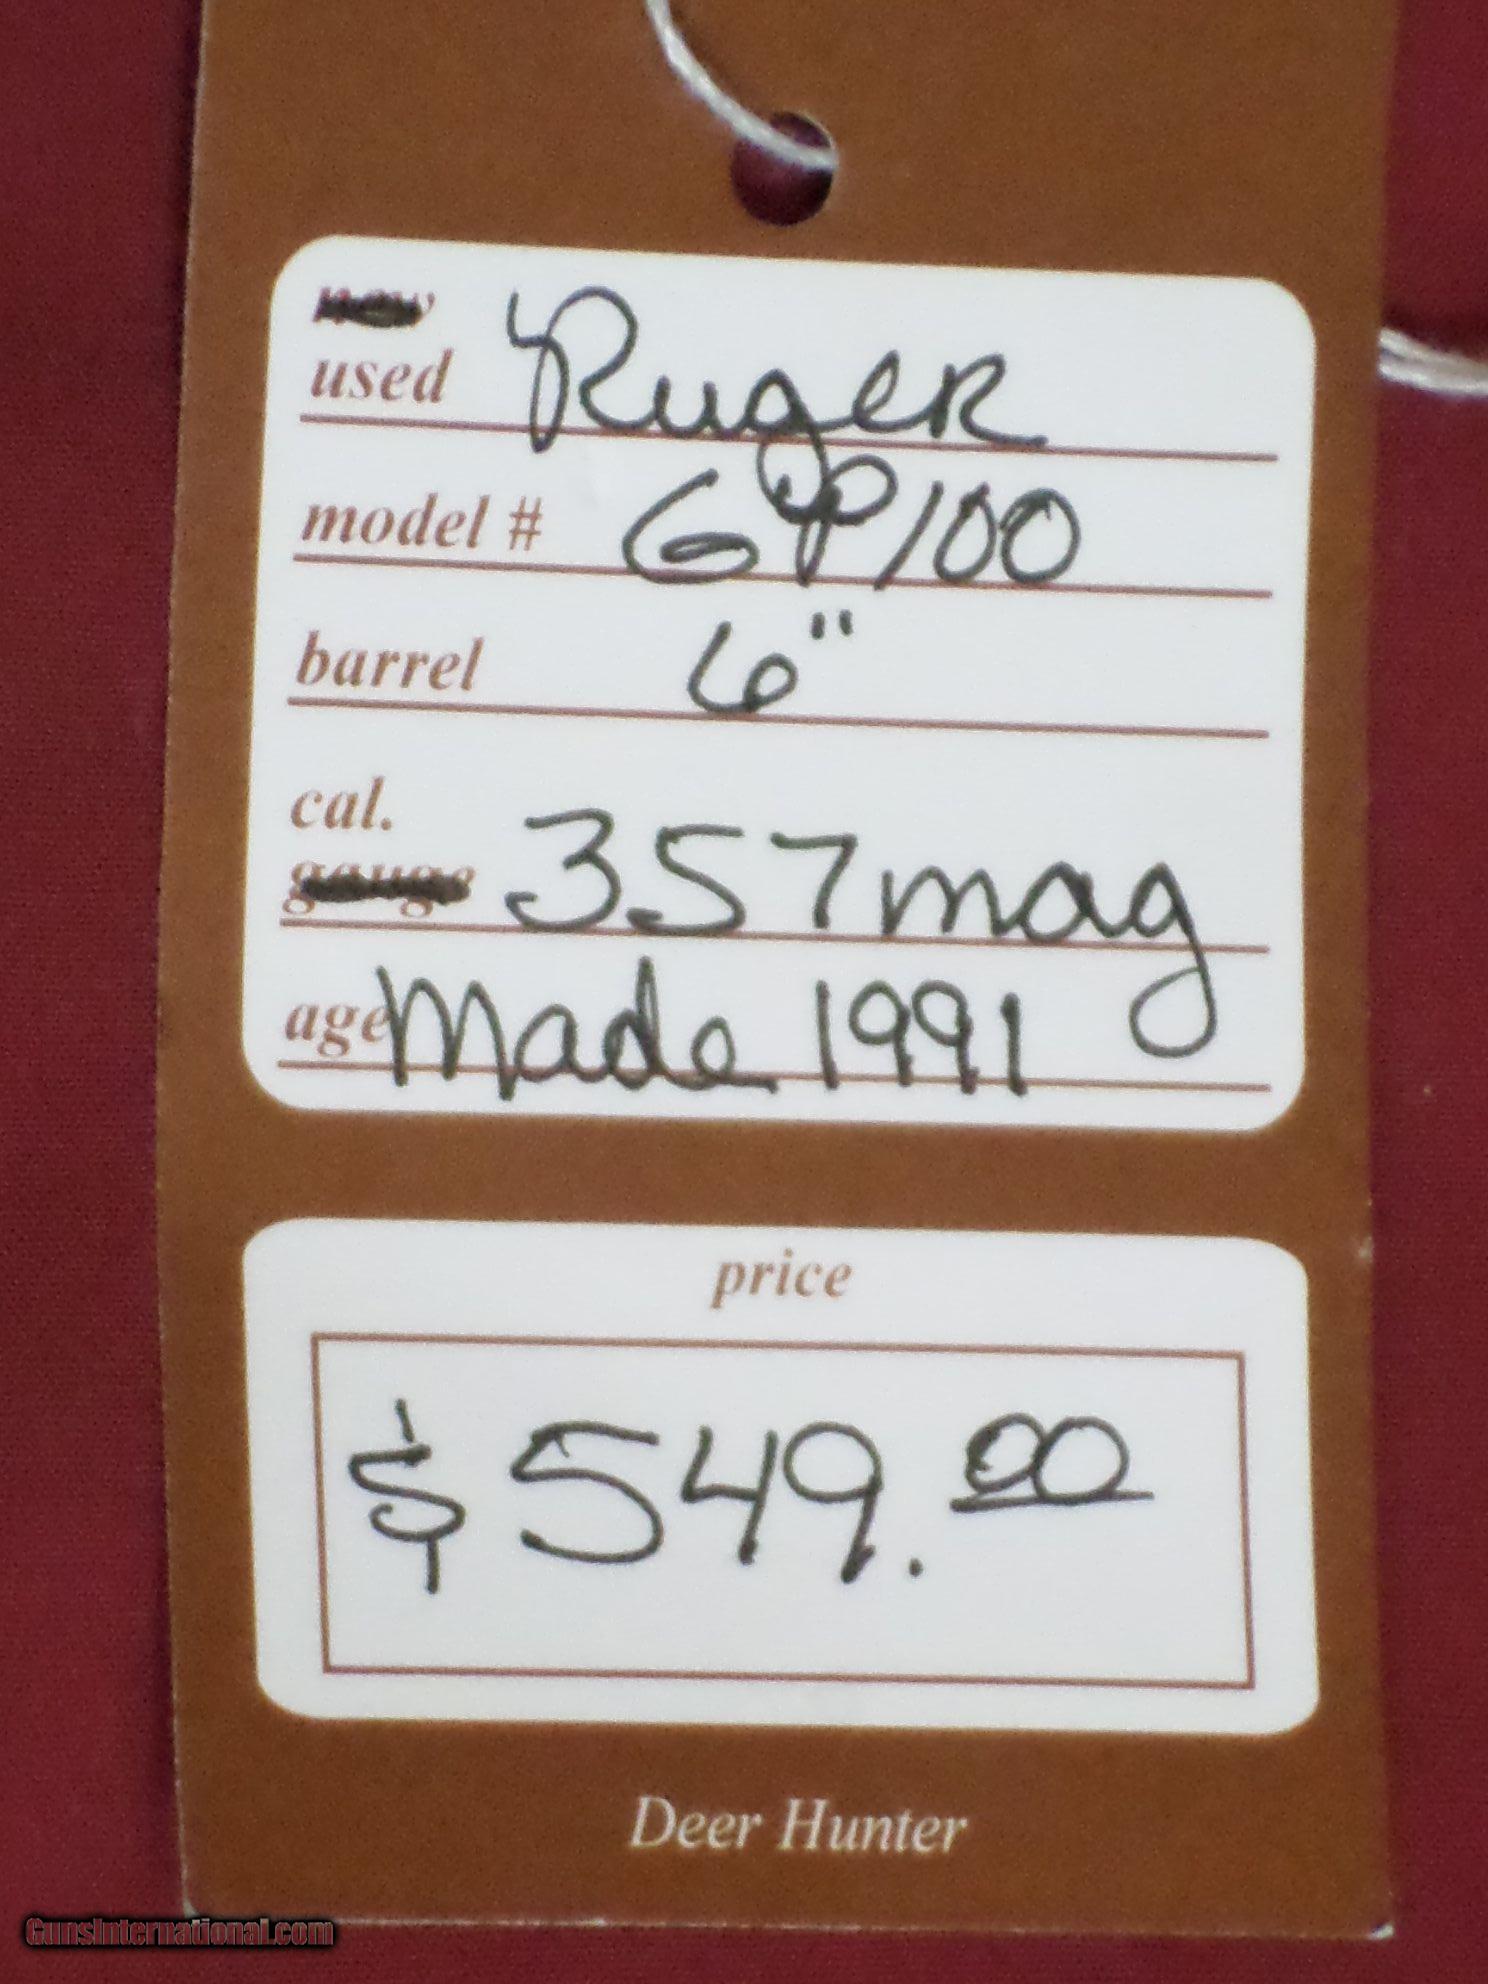 new
used Ruger
model # GP/100
barrel 6"
cal.
gauge .357 mag
age Made 1991
price
$549.00
Deer Hunter
GunsInternational.com